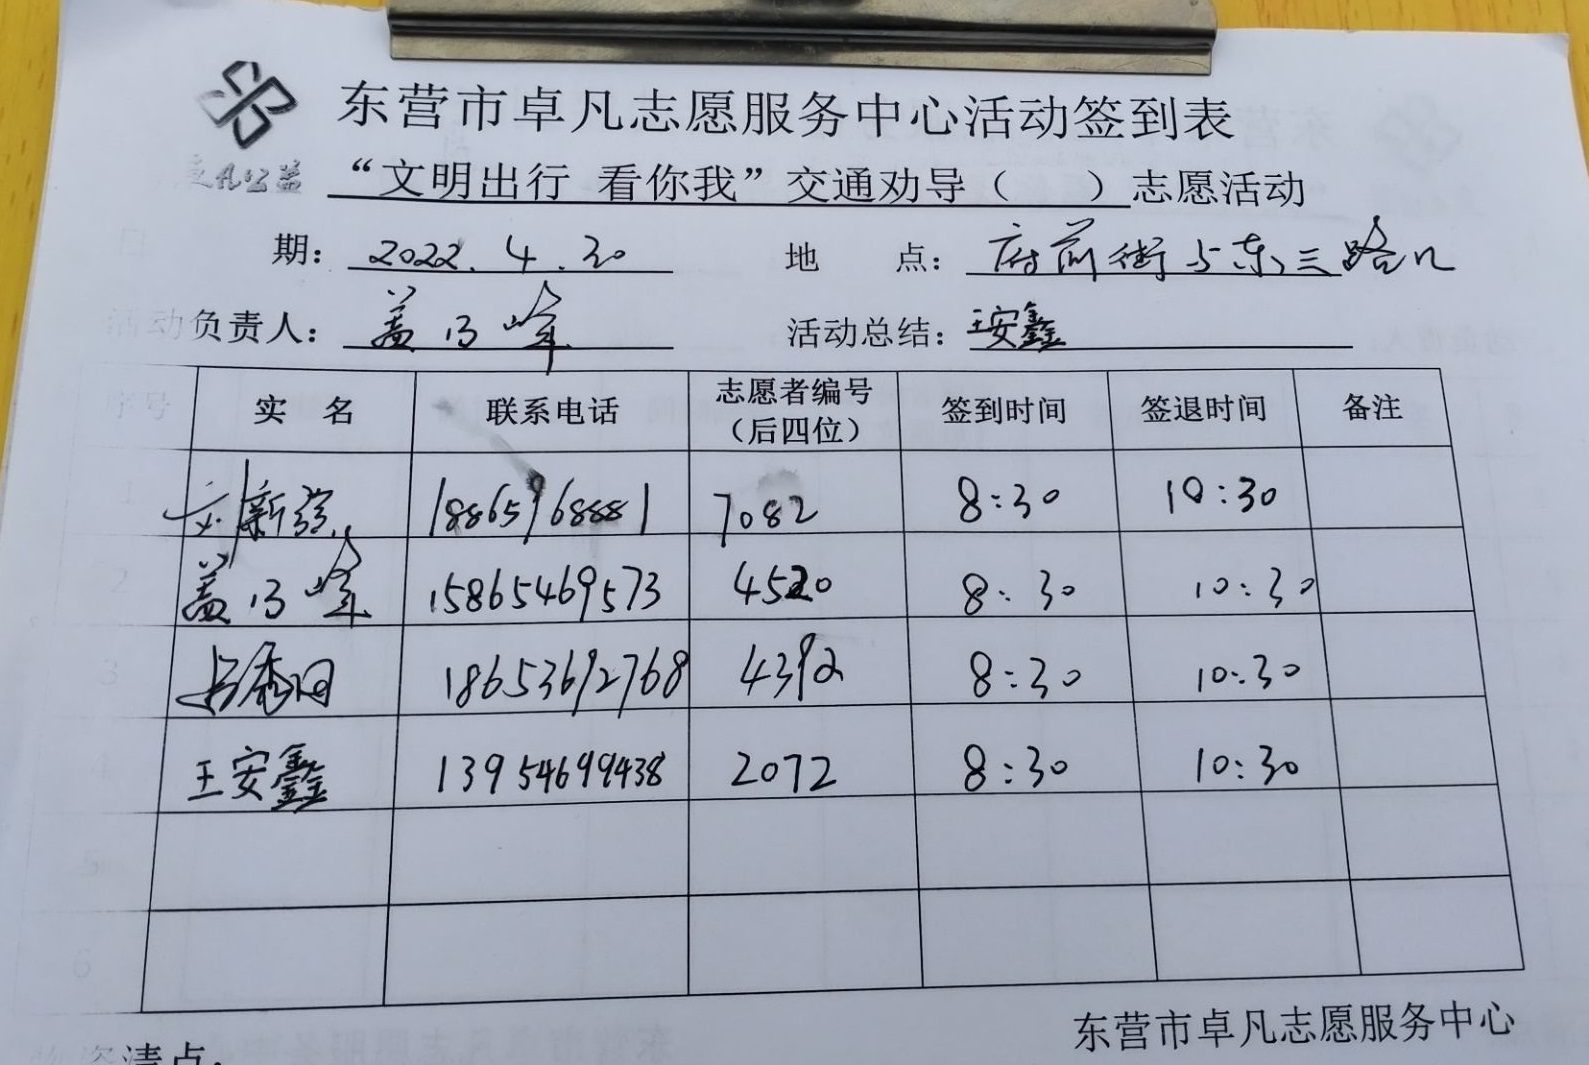 东营市卓凡志愿服务中心活动签到表
卓凡公益
“文明出行 看你我”交通劝导（ ）志愿活动
期： 2022.4.30 地 点： 府前街与东三路口
活动负责人： 盖乃峰 活动总结： 王安鑫
序号 实 名 联系电话 志愿者编号（后四位） 签到时间 签退时间 备注
1 刘新强 18659168881 7082 8:30 10:30
2 盖乃峰 15865469573 4520 8:30 10:30
3 18653692768 4392 8:30 10:30
4 王安鑫 13954699438 2072 8:30 10:30
5
6
东营市卓凡志愿服务中心
物资清点：